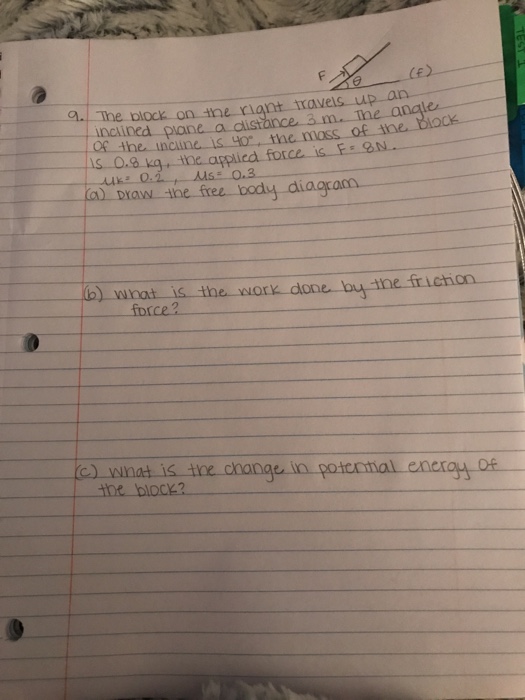 F
θ
(f)
9. The block on the right travels up an
inclined plane a distance 3 m. The angle
of the incline is 40°, the mass of the block
is 0.8 kg, the applied force is F = 8N.
μk = 0.2, μs = 0.3
(a) Draw the free body diagram
(b) what is the work done by the friction
force?
(c) what is the change in potential energy of
the block?